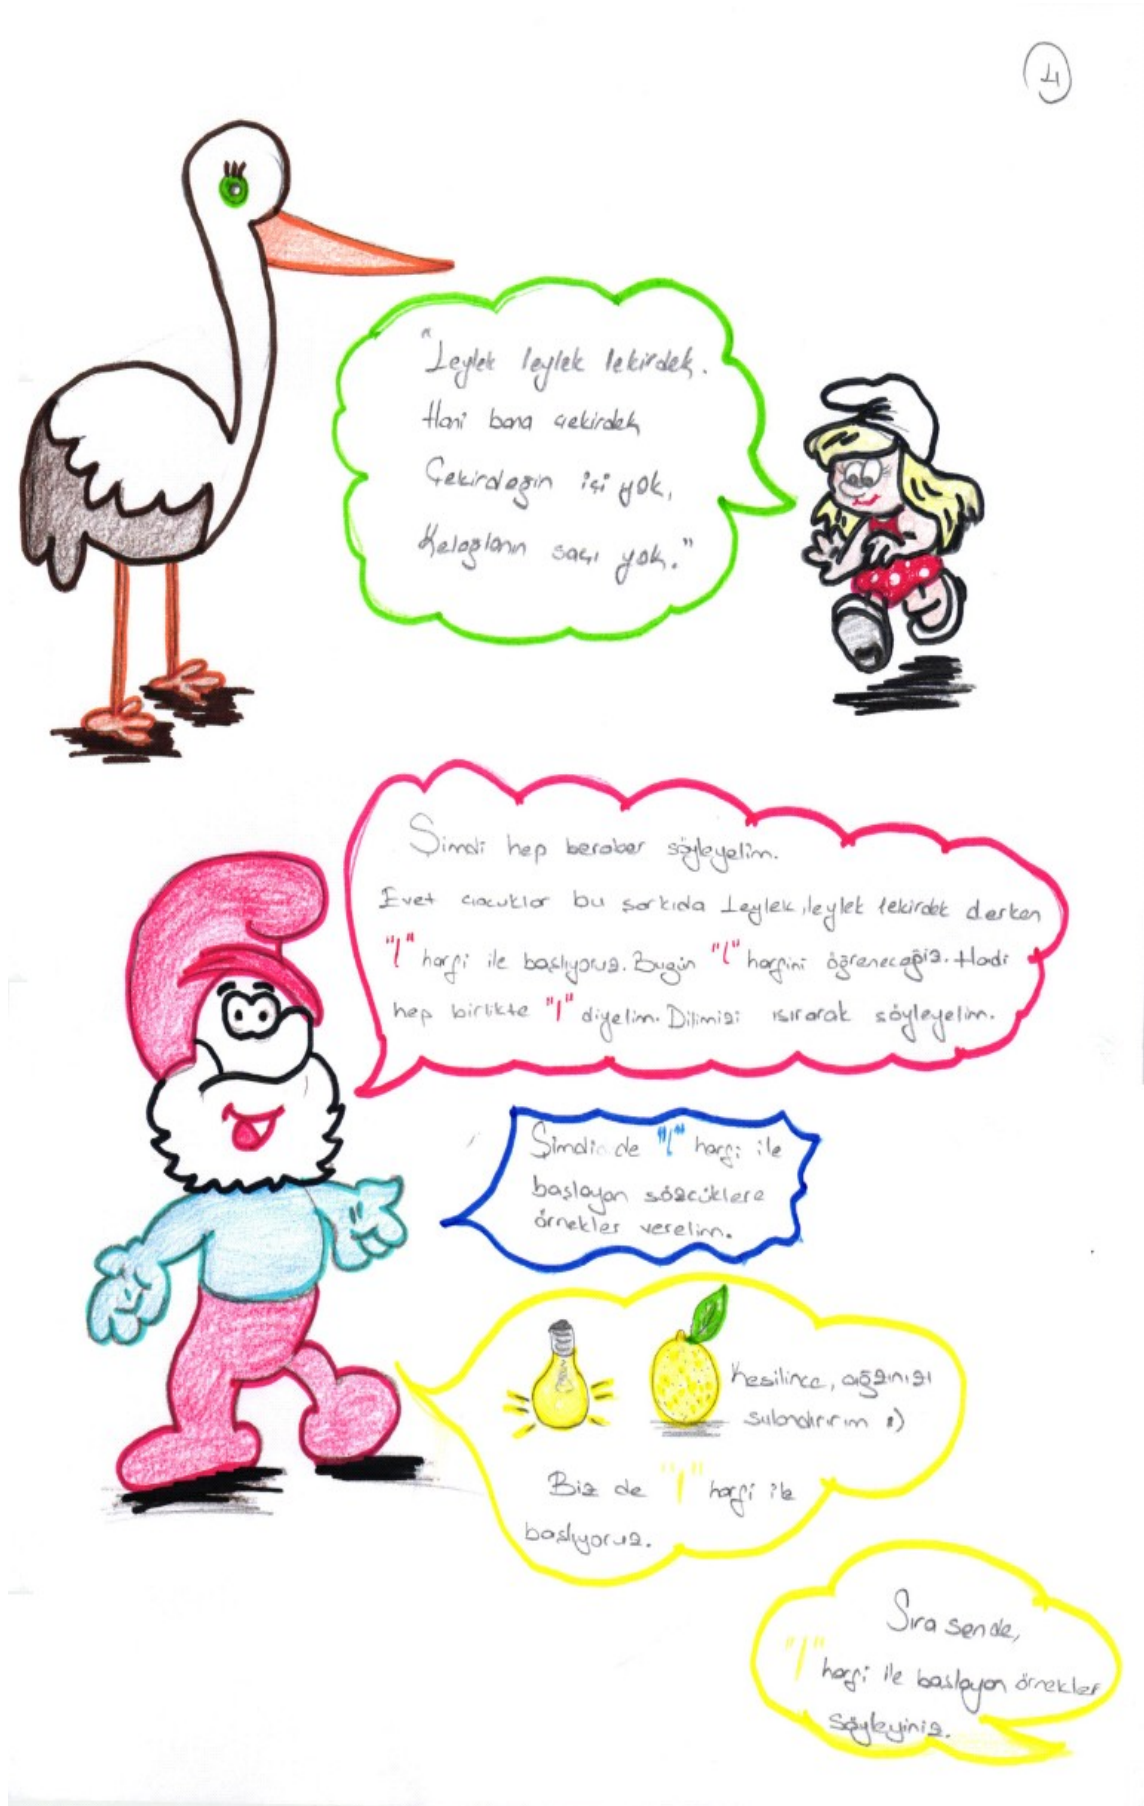 4
"Leylek leylek lekirdek.
Hani bana çekirdek
Çekirdeğin içi yok,
Keloğlanın saçı yok."
Şimdi hep beraber söyleyelim.
Evet çocuklar bu şarkıda Leylek, leylek lekirdek derken
"l" harfi ile başlıyoruz. Bugün "l" harfini öğreneceğiz. Hadi
hep birlikte "l" diyelim. Dilimizi ısırarak söyleyelim.
Şimdi de "l" harfi ile
başlayan sözcüklere
örnekler verelim.
Kesilince, ağzınızı
sulandırırım :)
Biz de "l" harfi ile
başlıyoruz.
Sıra sende,
"l" harfi ile başlayan örnekler
söyleyiniz.